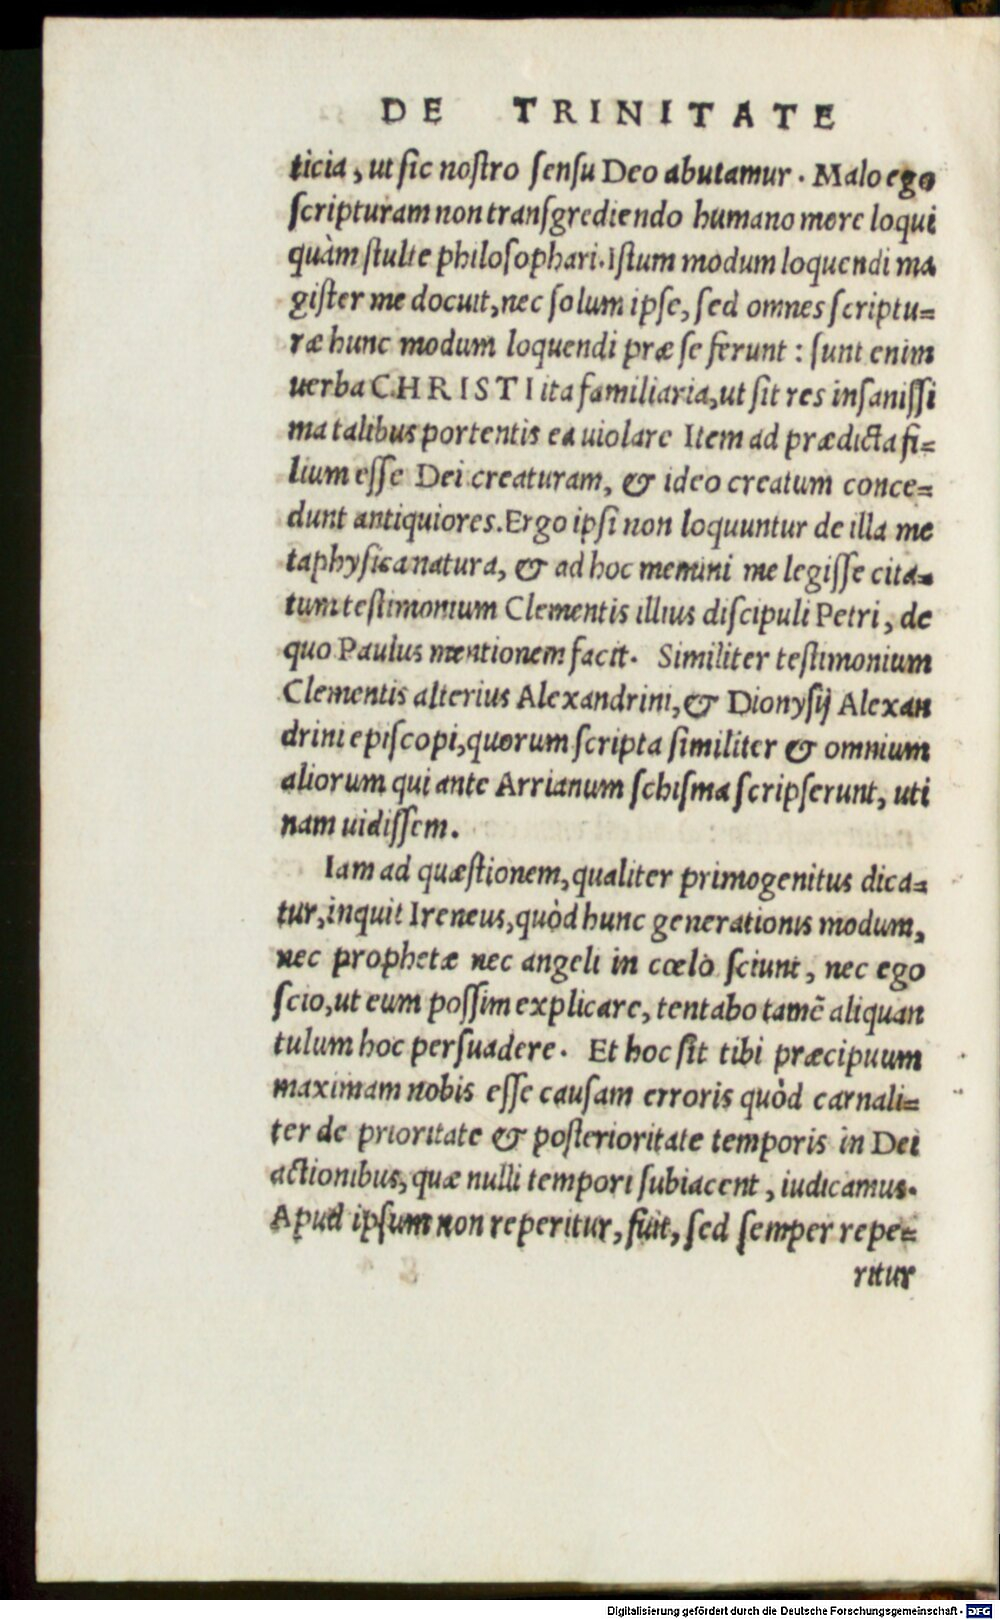 DE TRINITATE
ticia, ut sic nostro sensu Deo abutamur. Malo ego
scripturam non transgrediendo humano more loqui
quàm stulte philosophari. Istum modum loquendi ma
gister me docuit, nec solum ipse, sed omnes scriptu=
ræ hunc modum loquendi præ se ferunt: sunt enim
uerba CHRISTI ita familiaria, ut sit res insanissi
ma talibus portentis ea uiolare Item ad prædicta fi=
lium esse Dei creaturam, & ideo creatum conce=
dunt antiquiores. Ergo ipsi non loquuntur de illa me
taphysica natura, & ad hoc memini me legisse cita=
tum testimonium Clementis illius discipuli Petri, de
quo Paulus mentionem facit. Similiter testimonium
Clementis alterius Alexandrini, & Dionysij Alexan
drini episcopi, quorum scripta similiter & omnium
aliorum qui ante Arrianum schisma scripserunt, uti
nam uidissem.
Iam ad quæstionem, qualiter primogenitus dica=
tur, inquit Ireneus, quòd hunc generationis modum,
nec prophetæ nec angeli in cœlo sciunt, nec ego
scio, ut eum possim explicare, tentabo tamē aliquan
tulum hoc persuadere. Et hoc sit tibi præcipuum
maximam nobis esse causam erroris quòd carnali=
ter de prioritate & posterioritate temporis in Dei
actionibus, quæ nulli tempori subiacent, iudicamus.
Apud ipsum non reperitur, fuit, sed semper repe=
ritur
Digitalisierung gefördert durch die Deutsche Forschungsgemeinschaft - DFG